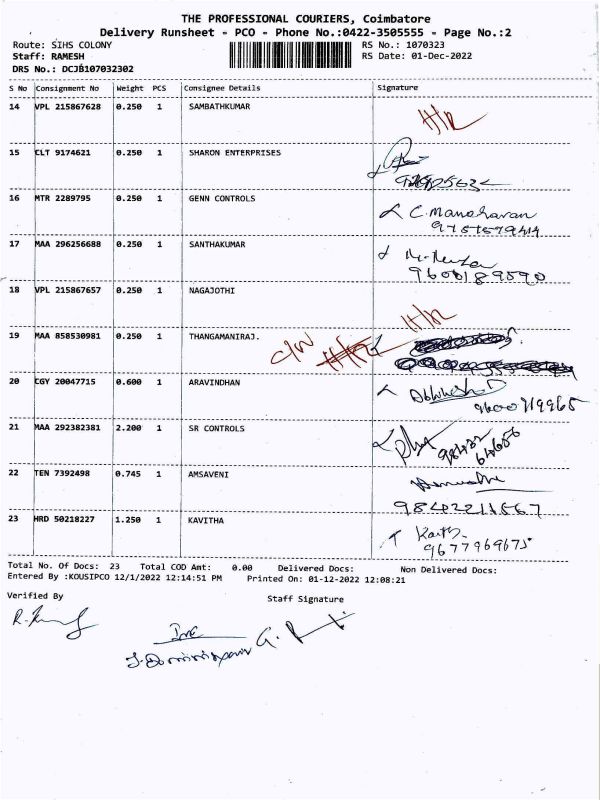 THE PROFESSIONAL COURIERS, Coimbatore
Delivery Runsheet - PCO - Phone No.:0422-3505555 - Page No.:2
Route: SIHS COLONY RS No.: 1070323
Staff: RAMESH RS Date: 01-Dec-2022
DRS No.: DCJB107032302
S No Consignment No Weight PCS Consignee Details Signature
14 VPL 215867628 0.250 1 SAMBATHKUMAR H/R
15 CLT 9174621 0.250 1 SHARON ENTERPRISES
16 MTR 2289795 0.250 1 GENN CONTROLS C. Manoharan
17 MAA 296256688 0.250 1 SANTHAKUMAR
9600189590
18 VPL 215867657 0.250 1 NAGAJOTHI H/R
19 MAA 858530981 0.250 1 THANGAMANIRAJ. C/W H/R
20 CGY 20047715 0.600 1 ARAVINDHAN
9600719965
21 MAA 292382381 2.200 1 SR CONTROLS
98432
64656
22 TEN 7392498 0.745 1 AMSAVENI
23 HRD 50218227 1.250 1 KAVITHA
9677969675
Total No. Of Docs: 23 Total COD Amt: 0.00 Delivered Docs: Non Delivered Docs:
Entered By :KOUSIPCO 12/1/2022 12:14:51 PM Printed On: 01-12-2022 12:08:21
Verified By Staff Signature